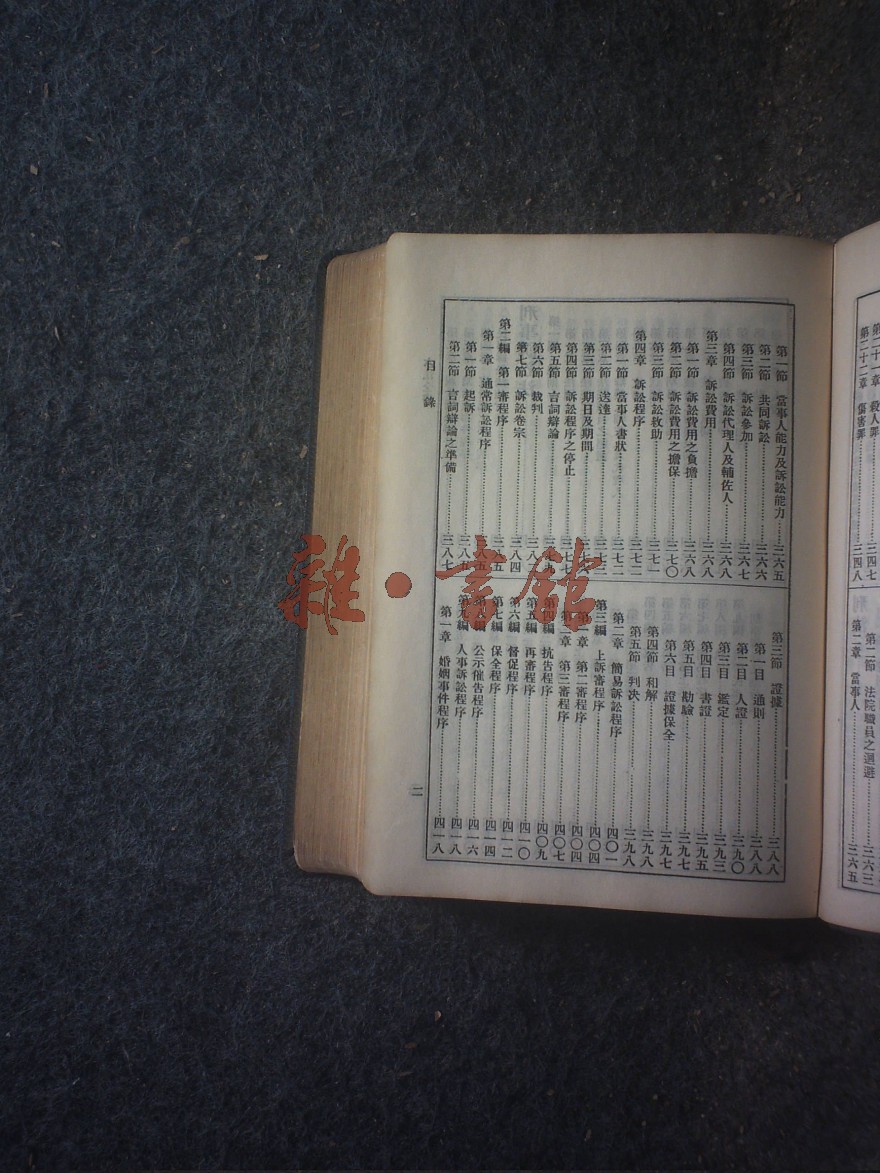 第二十一章 殺人罪……三四七
第二十二章 傷害罪……三四八
第二節 法院職員之迴避……三六三
第二章 當事人……三六五
第一節 當事人能力及訴訟能力……三六五
第二節 共同訴訟……三六六
第三節 訴訟參加……三六七
第四節 訴訟代理人及輔佐人……三六八
第三章 訴訟費用……三六八
第一節 訴訟費用之負擔……三六八
第二節 訴訟費用之擔保……三七〇
第三節 訴訟救助……三七一
第四章 訴訟程序……三七二
第一節 當事人書狀……三七二
第二節 送達……三七三
第三節 期日及期間
第四節 訴訟程序之停止……三七七
第五節 言詞辯論……三七九
第六節 裁判……三八二
第七節 訴訟卷宗……三八四
第二編 第一審程序……三八五
第一章 通常訴訟程序……三八五
第一節 起訴……三八五
第二節 言詞辯論之準備……三八七
第三節 證據……三八八
第一目 通則……三八八
第二目 人證……三九〇
第三目 鑑定……三九三
第四目 書證……三九五
第五目 勘驗……三九七
第六目 證據保全……三九七
第四節 和解……三九八
第五節 判決……三九八
第二章 簡易訴訟程序……四〇一
第三編 上訴審程序……四〇四
第一章 第二審程序……四〇四
第二章 第三審程序……四〇七
第四編 抗告程序……四〇九
第五編 再審程序……四一〇
第六編 督促程序……四一二
第七編 保全程序……四一四
第八編 公示催告程序……四一六
第九編 人事訴訟程序……四一八
第一章 婚姻事件程序……四一八
目錄
二
雜·書館